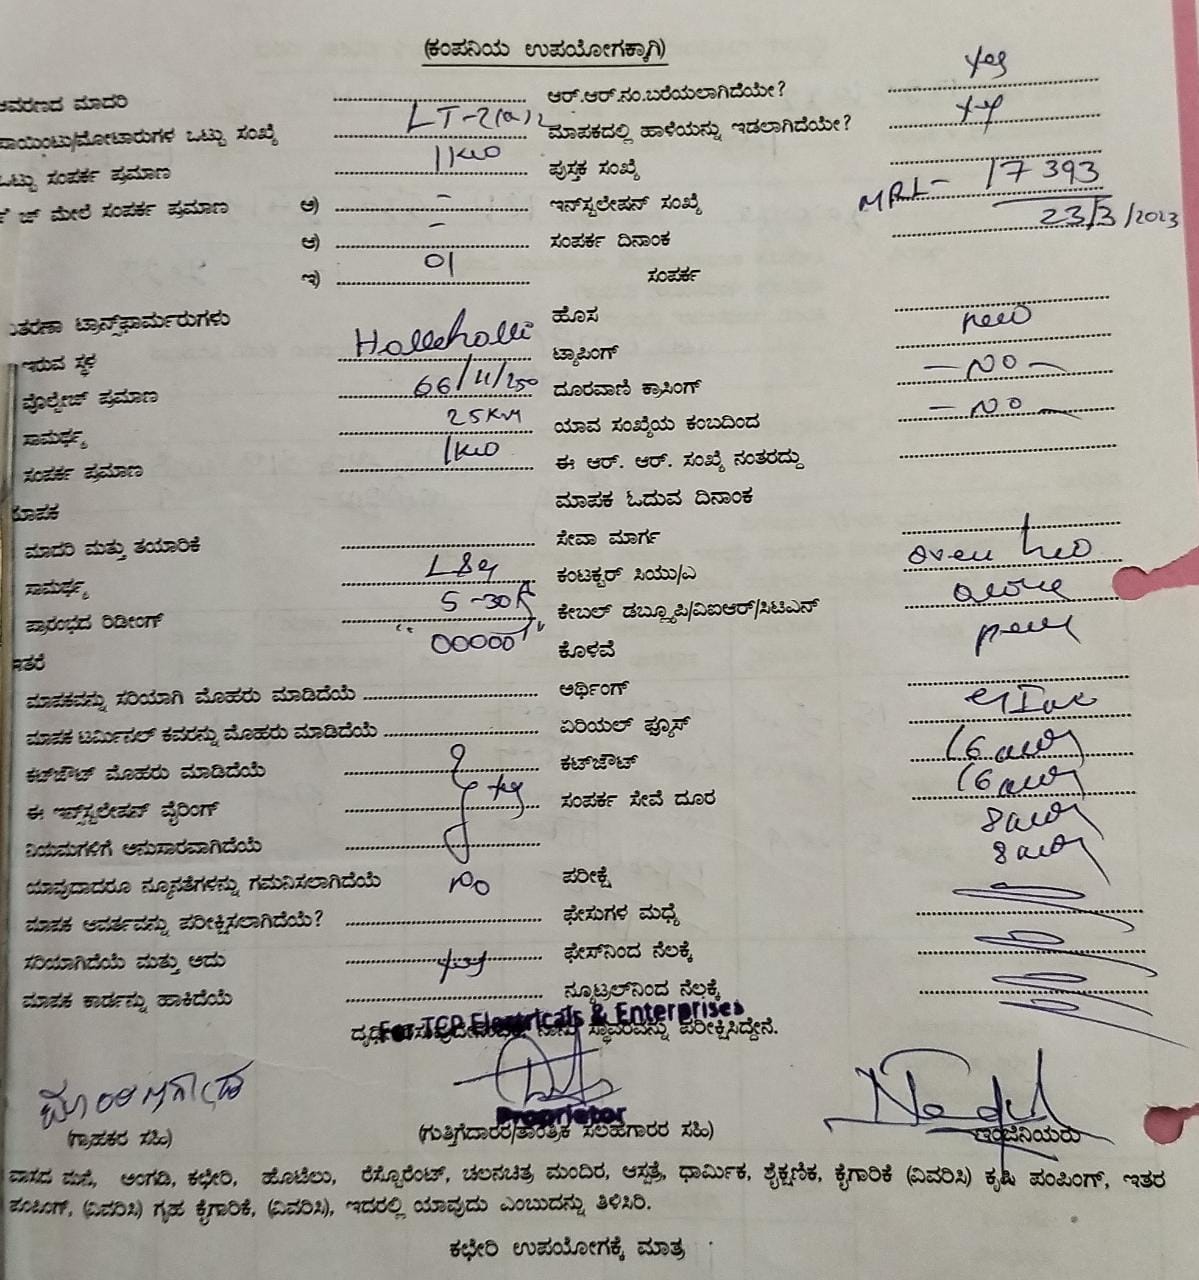 (ಕಂಪನಿಯ ಉಪಯೋಗಕ್ಕಾಗಿ)
ಆವರಣದ ಮಾದರಿ LT-2(a)2 ಆರ್.ಆರ್.ನಂ.ಬರೆಯಲಾಗಿದೆಯೇ? yes
ಪಾಯಿಂಟು/ಮೋಟಾರುಗಳ ಒಟ್ಟು ಸಂಖ್ಯೆ 1KW ಮಾಪಕದಲ್ಲಿ ಹಾಳೆಯನ್ನು ಇಡಲಾಗಿದೆಯೇ?
ಒಟ್ಟು ಸಂಪರ್ಕ ಪ್ರಮಾಣ ಪುಸ್ತಕ ಸಂಖ್ಯೆ
ಜ್ ಮೇಲೆ ಸಂಪರ್ಕ ಪ್ರಮಾಣ ಅ) - ಇನ್‌ಸ್ಟಲೇಷನ್ ಸಂಖ್ಯೆ MRL- 17393
ಆ) - ಸಂಪರ್ಕ ದಿನಾಂಕ 23/3/2023
ಇ) 01 ಸಂಪರ್ಕ
ತರಣಾ ಟ್ರಾನ್ಸ್‌ಫಾರ್ಮರುಗಳು ಹೊಸ new
ಇರುವ ಸ್ಥಳ Hallehalli ಟ್ಯಾಪಿಂಗ್ - NO -
ವೊಲ್ಟೇಜ್ ಪ್ರಮಾಣ 66/11/250 ದೂರವಾಣಿ ಕ್ರಾಸಿಂಗ್ - NO -
ಸಾಮರ್ಥ್ಯ 25KVA ಯಾವ ಸಂಖ್ಯೆಯ ಕಂಬದಿಂದ
ಸಂಪರ್ಕ ಪ್ರಮಾಣ 1KW ಈ ಆರ್. ಆರ್. ಸಂಖ್ಯೆ ನಂತರದ್ದು
ಮಾಪಕ ಮಾಪಕ ಓದುವ ದಿನಾಂಕ
ಮಾದರಿ ಮತ್ತು ತಯಾರಿಕೆ L&G ಸೇವಾ ಮಾರ್ಗ
ಸಾಮರ್ಥ್ಯ 5-30A ಕಂಟಕ್ಟರ್ ಸಿಯು/ಎ
ಪ್ರಾರಂಭದ ರಿಡೀಂಗ್ "00000" ಕೇಬಲ್ ಡಬ್ಲ್ಯೂಪಿ/ವಿಐಆರ್/ಸಿಟಿಎಸ್
ಇತರೆ ಕೊಳವೆ
ಮಾಪಕವನ್ನು ಸರಿಯಾಗಿ ಮೊಹರು ಮಾಡಿದೆಯೆ ಅರ್ಥಿಂಗ್
ಮಾಪಕ ಟರ್ಮಿನಲ್ ಕವರನ್ನು ಮೊಹರು ಮಾಡಿದೆಯೆ ಏರಿಯಲ್ ಫ್ಯೂಸ್
ಕಟ್‌ಔಟ್ ಮೊಹರು ಮಾಡಿದೆಯೆ ಕಟ್‌ಔಟ್
ಈ ಇನ್‌ಸ್ಟಲೇಷನ್ ವೈರಿಂಗ್ ಸಂಪರ್ಕ ಸೇವೆ ದೂರ
ನಿಯಮಗಳಿಗೆ ಅನುಸಾರವಾಗಿದೆಯೆ
ಯಾವುದಾದರೂ ನ್ಯೂನತೆಗಳನ್ನು ಗಮನಿಸಲಾಗಿದೆಯೆ No ಪರೀಕ್ಷೆ
ಮಾಪಕ ಆವರ್ತವನ್ನು ಪರೀಕ್ಷಿಸಲಾಗಿದೆಯೆ? ಫೇಸುಗಳ ಮಧ್ಯೆ
ಸರಿಯಾಗಿದೆಯೆ ಮತ್ತು ಅದು ಫೇಸ್‌ನಿಂದ ನೆಲಕ್ಕೆ
ಮಾಪಕ ಕಾರ್ಡನ್ನು ಹಾಕಿದೆಯೆ ನ್ಯೂಟ್ರಲ್‌ನಿಂದ ನೆಲಕ್ಕೆ
For TCP Electricals & Enterprises
ನಾನು ಸ್ಥಾವರವನ್ನು ಪರೀಕ್ಷಿಸಿದ್ದೇನೆ.
Proprietor
(ಗ್ರಾಹಕರ ಸಹಿ) (ಗುತ್ತಿಗೆದಾರರ/ತಾಂತ್ರಿಕ ಸಲಹಗಾರರ ಸಹಿ) ಇಂಜಿನಿಯರು
ವಾಸದ ಮನೆ, ಅಂಗಡಿ, ಕಛೇರಿ, ಹೊಟೆಲು, ರೆಸ್ಟೋರೆಂಟ್, ಚಲನಚಿತ್ರ ಮಂದಿರ, ಆಸ್ಪತ್ರೆ, ಧಾರ್ಮಿಕ, ಶೈಕ್ಷಣಿಕ, ಕೈಗಾರಿಕೆ (ವಿವರಿಸಿ) ಕೃಷಿ ಪಂಪಿಂಗ್, ಇತರ
ಪಂಪಿಂಗ್, (ವಿವರಿಸಿ) ಗೃಹ ಕೈಗಾರಿಕೆ, (ವಿವರಿಸಿ), ಇದರಲ್ಲಿ ಯಾವುದು ಎಂಬುದನ್ನು ತಿಳಿಸಿರಿ.
ಕಛೇರಿ ಉಪಯೋಗಕ್ಕೆ ಮಾತ್ರ